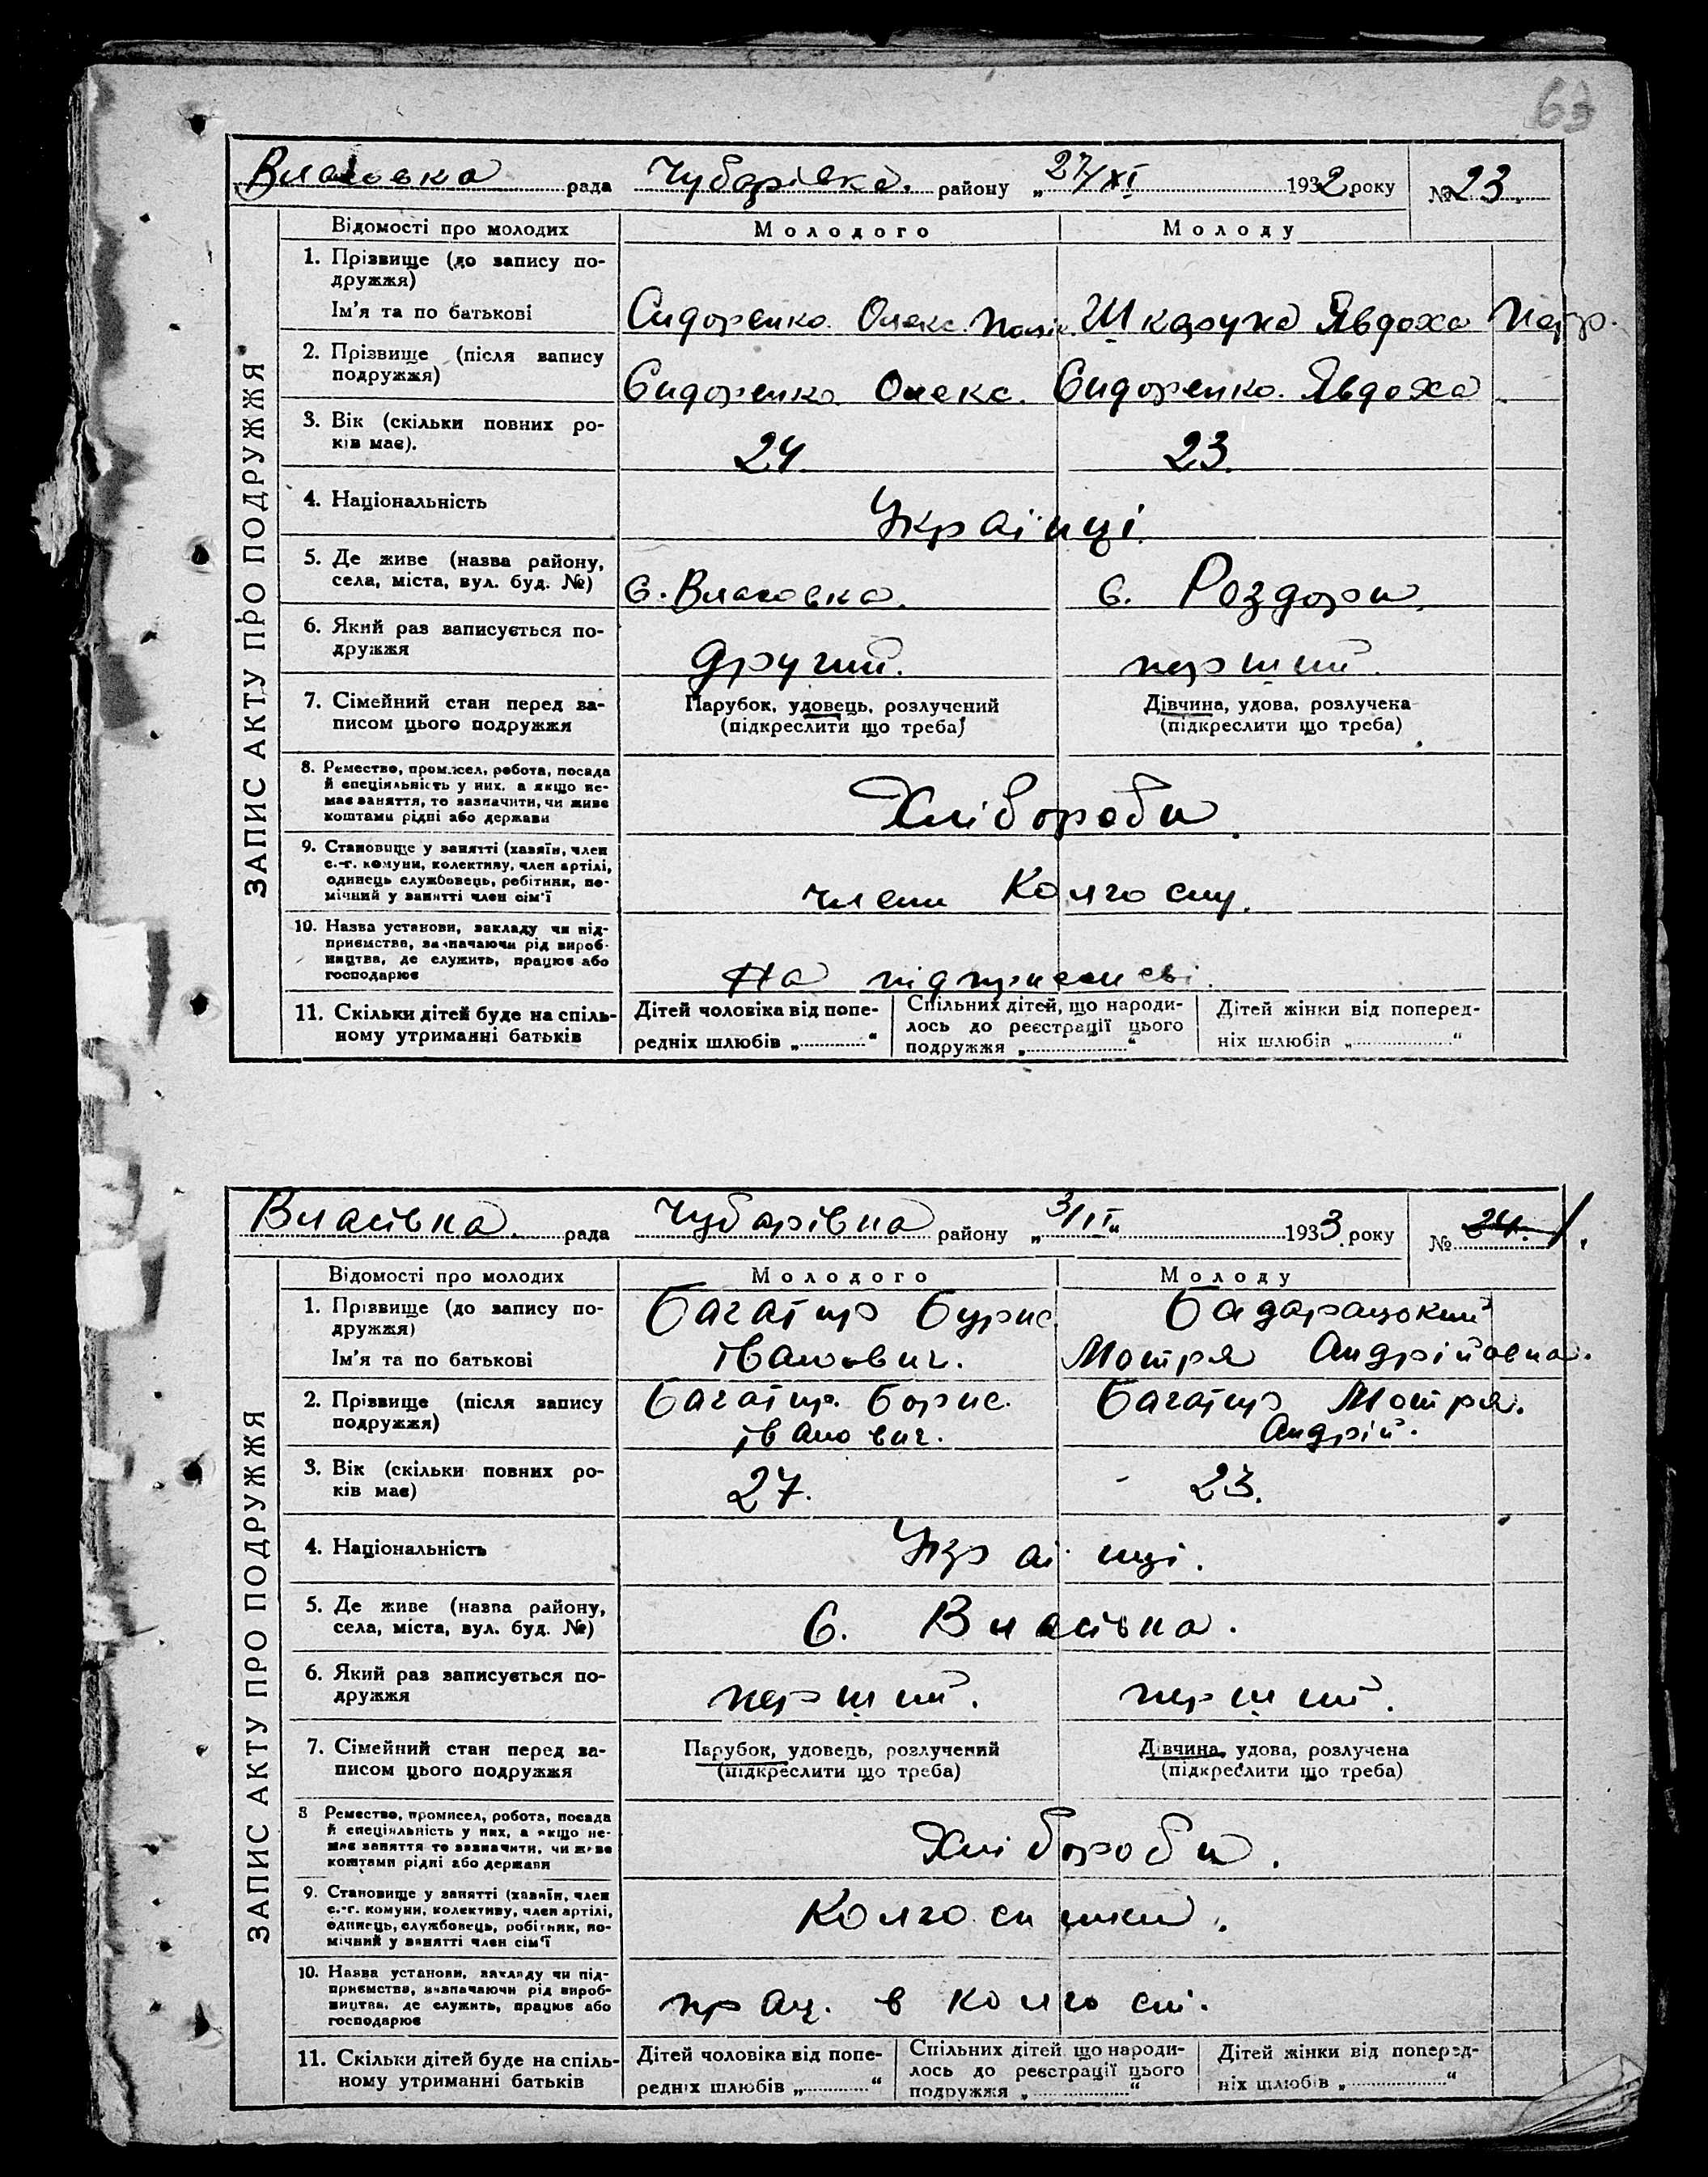 63
Власовка рада Чубарівка. району „27/XI 1932 року № 23.
ЗАПИС АКТУ ПРО ПОДРУЖЖЯ
Відомості про молодих Молодого Молоду
1. Прізвище (до запису по-
дружжя)
Ім'я та по батькові Сидоренко Олекс. Шкарупа Явдоха
2. Прізвище (після запису
подружжя) Сидоренко Олекс. Сидоренко. Явдоха
3. Вік (скільки повних ро-
ків має). 24 23.
4. Національність Українці.
5. Де живе (назва району,
села, міста, вул. буд. №) с. Власовка. с. Роздори.
6. Який раз записується по-
дружжя другий. перший.
7. Сімейний стан перед за- Парубок, удовець, розлучений Дівчина, удова, розлучена
писом цього подружжя (підкреслити що треба) (підкреслити що треба)
8. Ремество, промисел, робота, посада
й спеціяльність у них, а якщо не-
має заняття, то зазначити, чи живе
коштами рідні або держави Хлібороби.
9. Становище у занятті (хазяїн, член
с.-г. комуни, колективу, член артілі,
одинець службовець, робітник, по-
мічний у занятті член сім'ї члени Колгоспу.
10. Назва установи, закладу чи під-
приємства, зазначаючи рід вироб-
ництва, де служить, працює або
господарює На
11. Скільки дітей буде на спіль- Дітей чоловіка від попе- Спільних дітей, що народи- Дітей жінки від поперед-
ному утриманні батьків редніх шлюбів „ “ лось до реєстрації цього ніх шлюбів „ “
подружжя „ “
Власівка. рада Чубарівка району „3/II“ 1933 року № 24. 1.
ЗАПИС АКТУ ПРО ПОДРУЖЖЯ
Відомості про молодих Молодого Молоду
1. Прізвище (до запису по- Багатир Бурис
дружжя)
Ім'я та по батькові Іванович. Мотря Андрійовна.
2. Прізвище (після запису Багатир. Борис. Багатир Мотря.
подружжя) Іванович. Андрій.
3. Вік (скільки повних ро-
ків має) 27. 23.
4. Національність Українці.
5. Де живе (назва району,
села, міста, вул. буд. №) С. Власівка.
6. Який раз записується по-
дружжя перший. перший.
7. Сімейний стан перед за- Парубок, удовець, розлучений Дівчина, удова, розлучена
писом цього подружжя (підкреслити що треба) (підкреслити що треба)
8 Ремество, промисел, робота, посада
й спеціяльність у них, а якщо не-
має заняття то зазначити, чи живе
коштами рідні або держави Хлібороби.
9. Становище у занятті (хазяїн, член
с.-г. комуни, колективу, член артілі,
одинець, службовець, робітник, по-
мічний у занятті член сім'ї Колгоспники.
10. Назва установи, закладу чи під-
приємства, зазначаючи рід вироб-
ництва, де служить, працює або
господарює прац. в колгоспі.
11. Скільки дітей буде на спіль- Дітей чоловіка від попе- Спільних дітей що народи- Дітей жінки від поперед-
ному утриманні батьків редніх шлюбів „ “ лось до реєстрації цього ніх шлюбів „ “
подружжя „ “